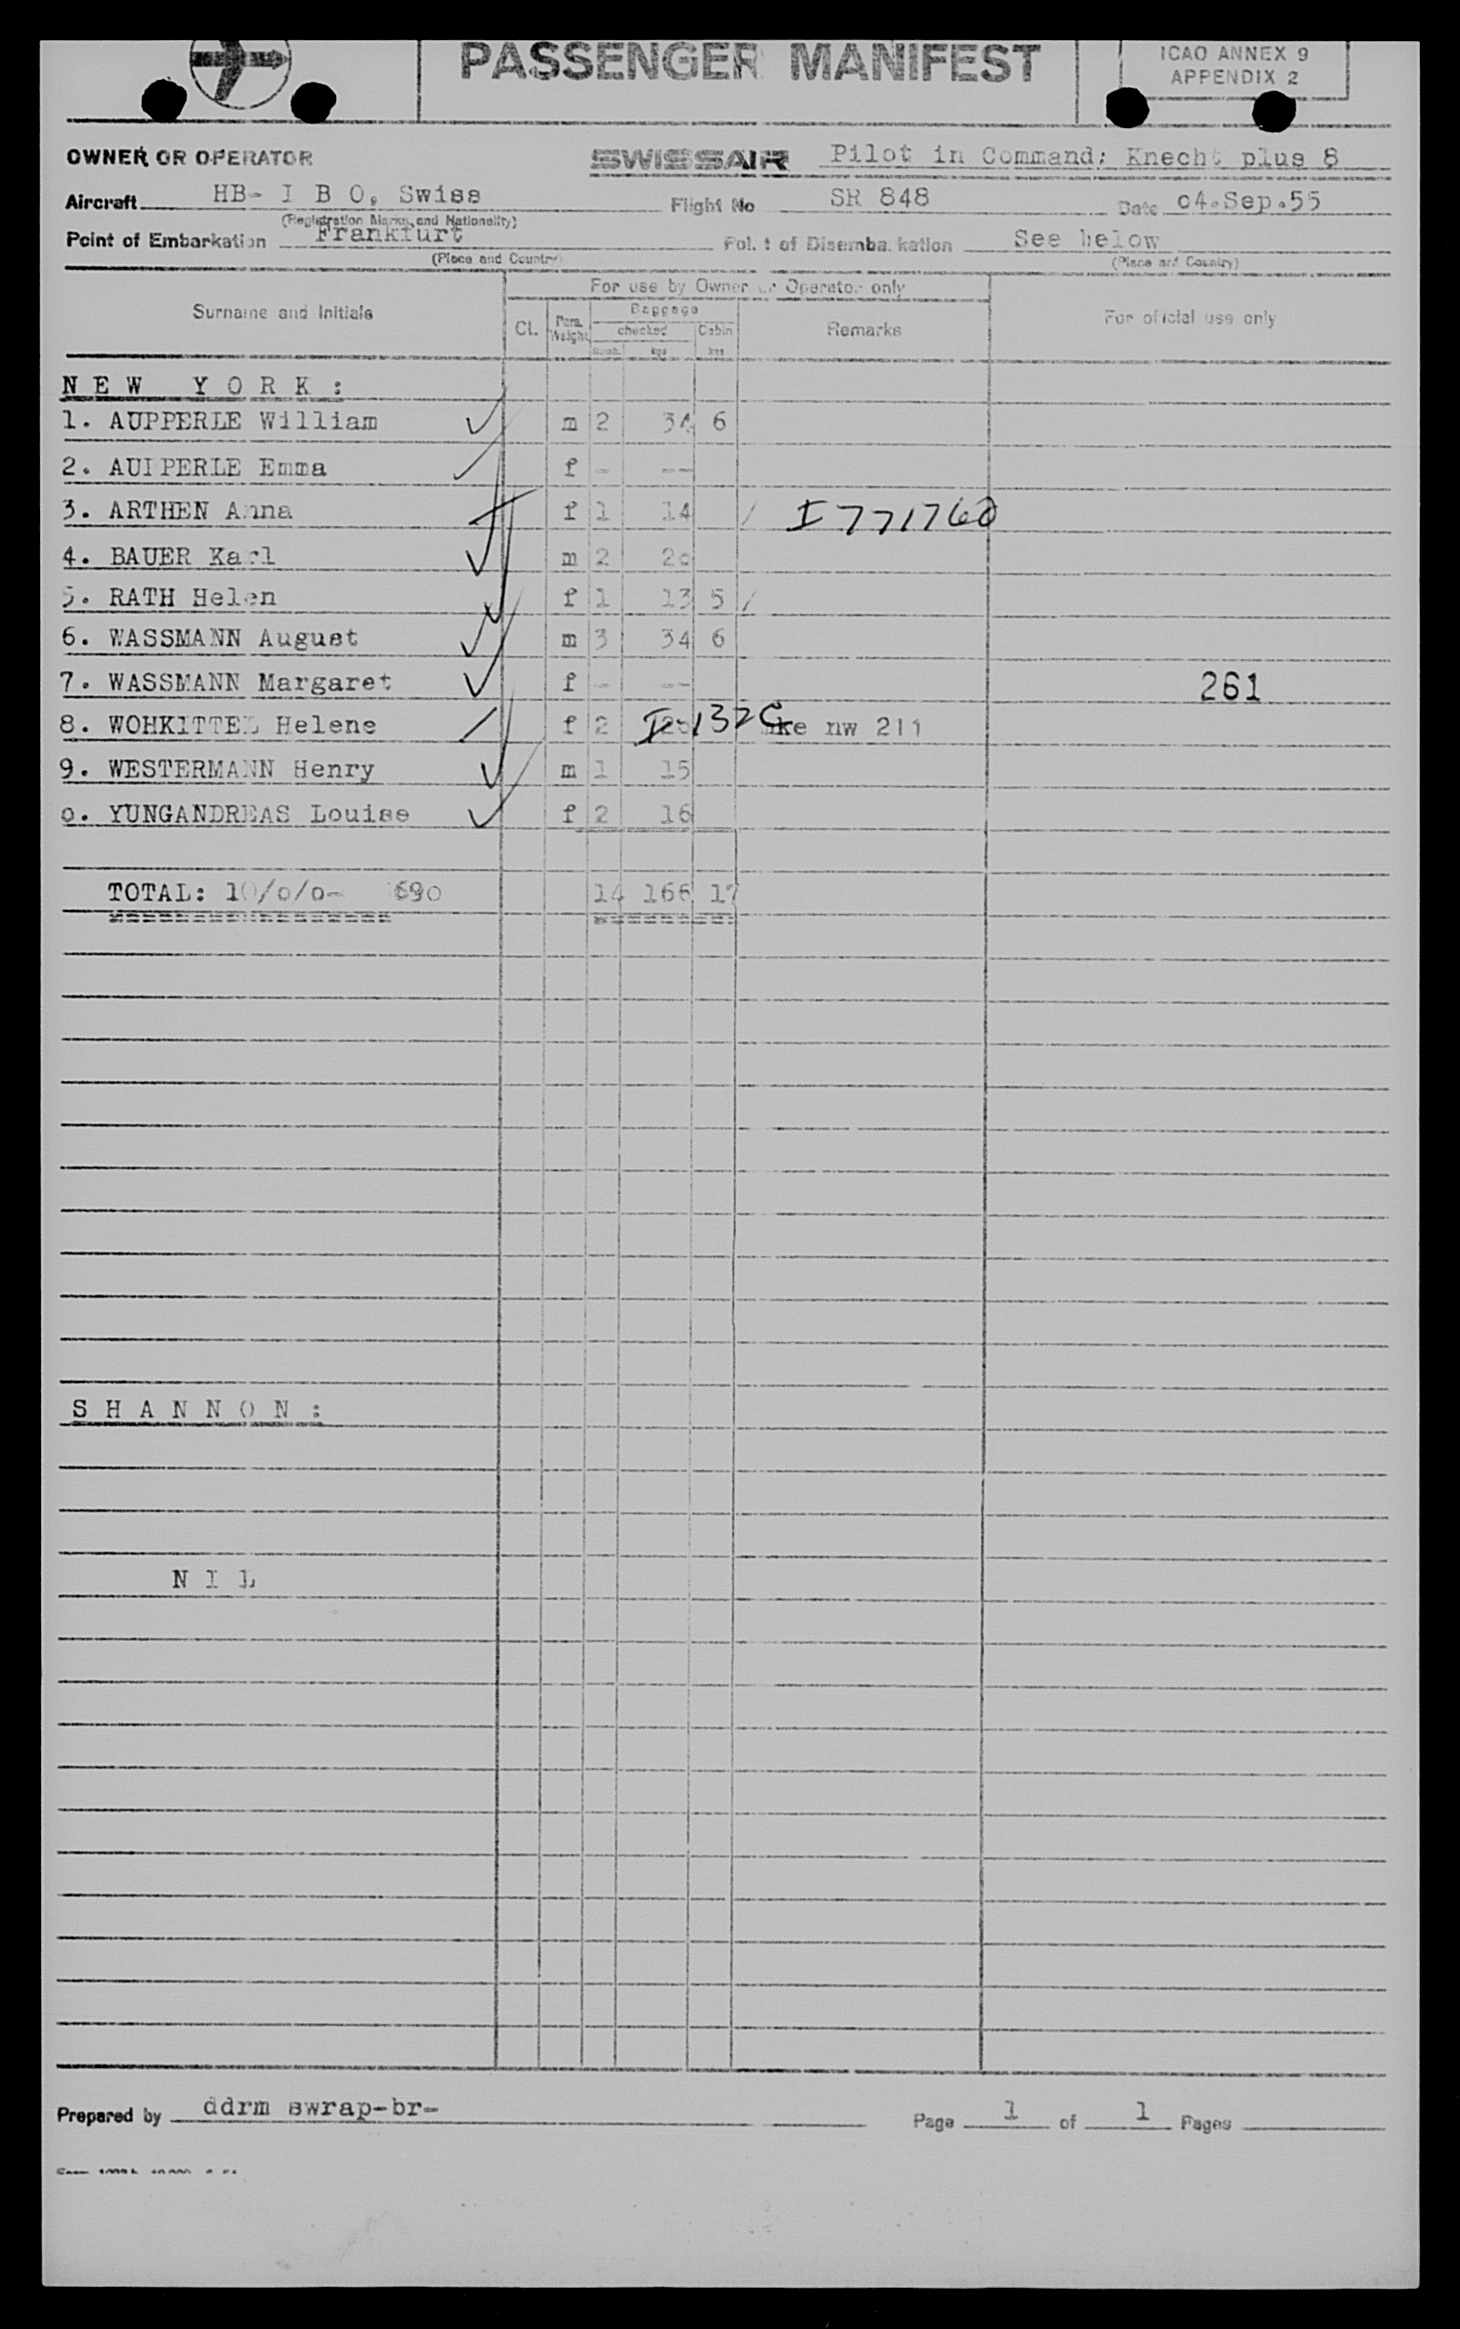 PASSENGER MANIFEST
ICAO ANNEX 9
APPENDIX 2
OWNER OR OPERATOR SWISSAIR Pilot in Command: Knecht plus 8
Aircraft HB- I B O, Swiss Flight No SR 848 Date 04.Sep.55
(Registration Marks and Nationality)
Point of Embarkation Frankfurt Point of Disembarkation See below
(Place and Country) (Place and Country)
For use by Owner or Operator only
Surname and Initials Cl. Pers. Weight Baggage Remarks For official use only
checked Cabin
kgs kgs
NEW YORK:
1. AUPPERLE William m 2 34 6
2. AUPPERLE Emma f - --
3. ARTHEN Anna f 1 14 / I771760
4. BAUER Karl m 2 20
5. RATH Helen f 1 13 5 /
6. WASSMANN August m 3 34 6
7. WASSMANN Margaret f - -- 261
8. WOHKITTEL Helene f 2 20 I-132C nw 211
9. WESTERMANN Henry m 1 15
0. YUNGANDREAS Louise f 2 16
TOTAL: 10/0/0- 690 14 166 17
SHANNON:
NIL
Prepared by ddrm swrap-br- Page 1 of 1 Pages